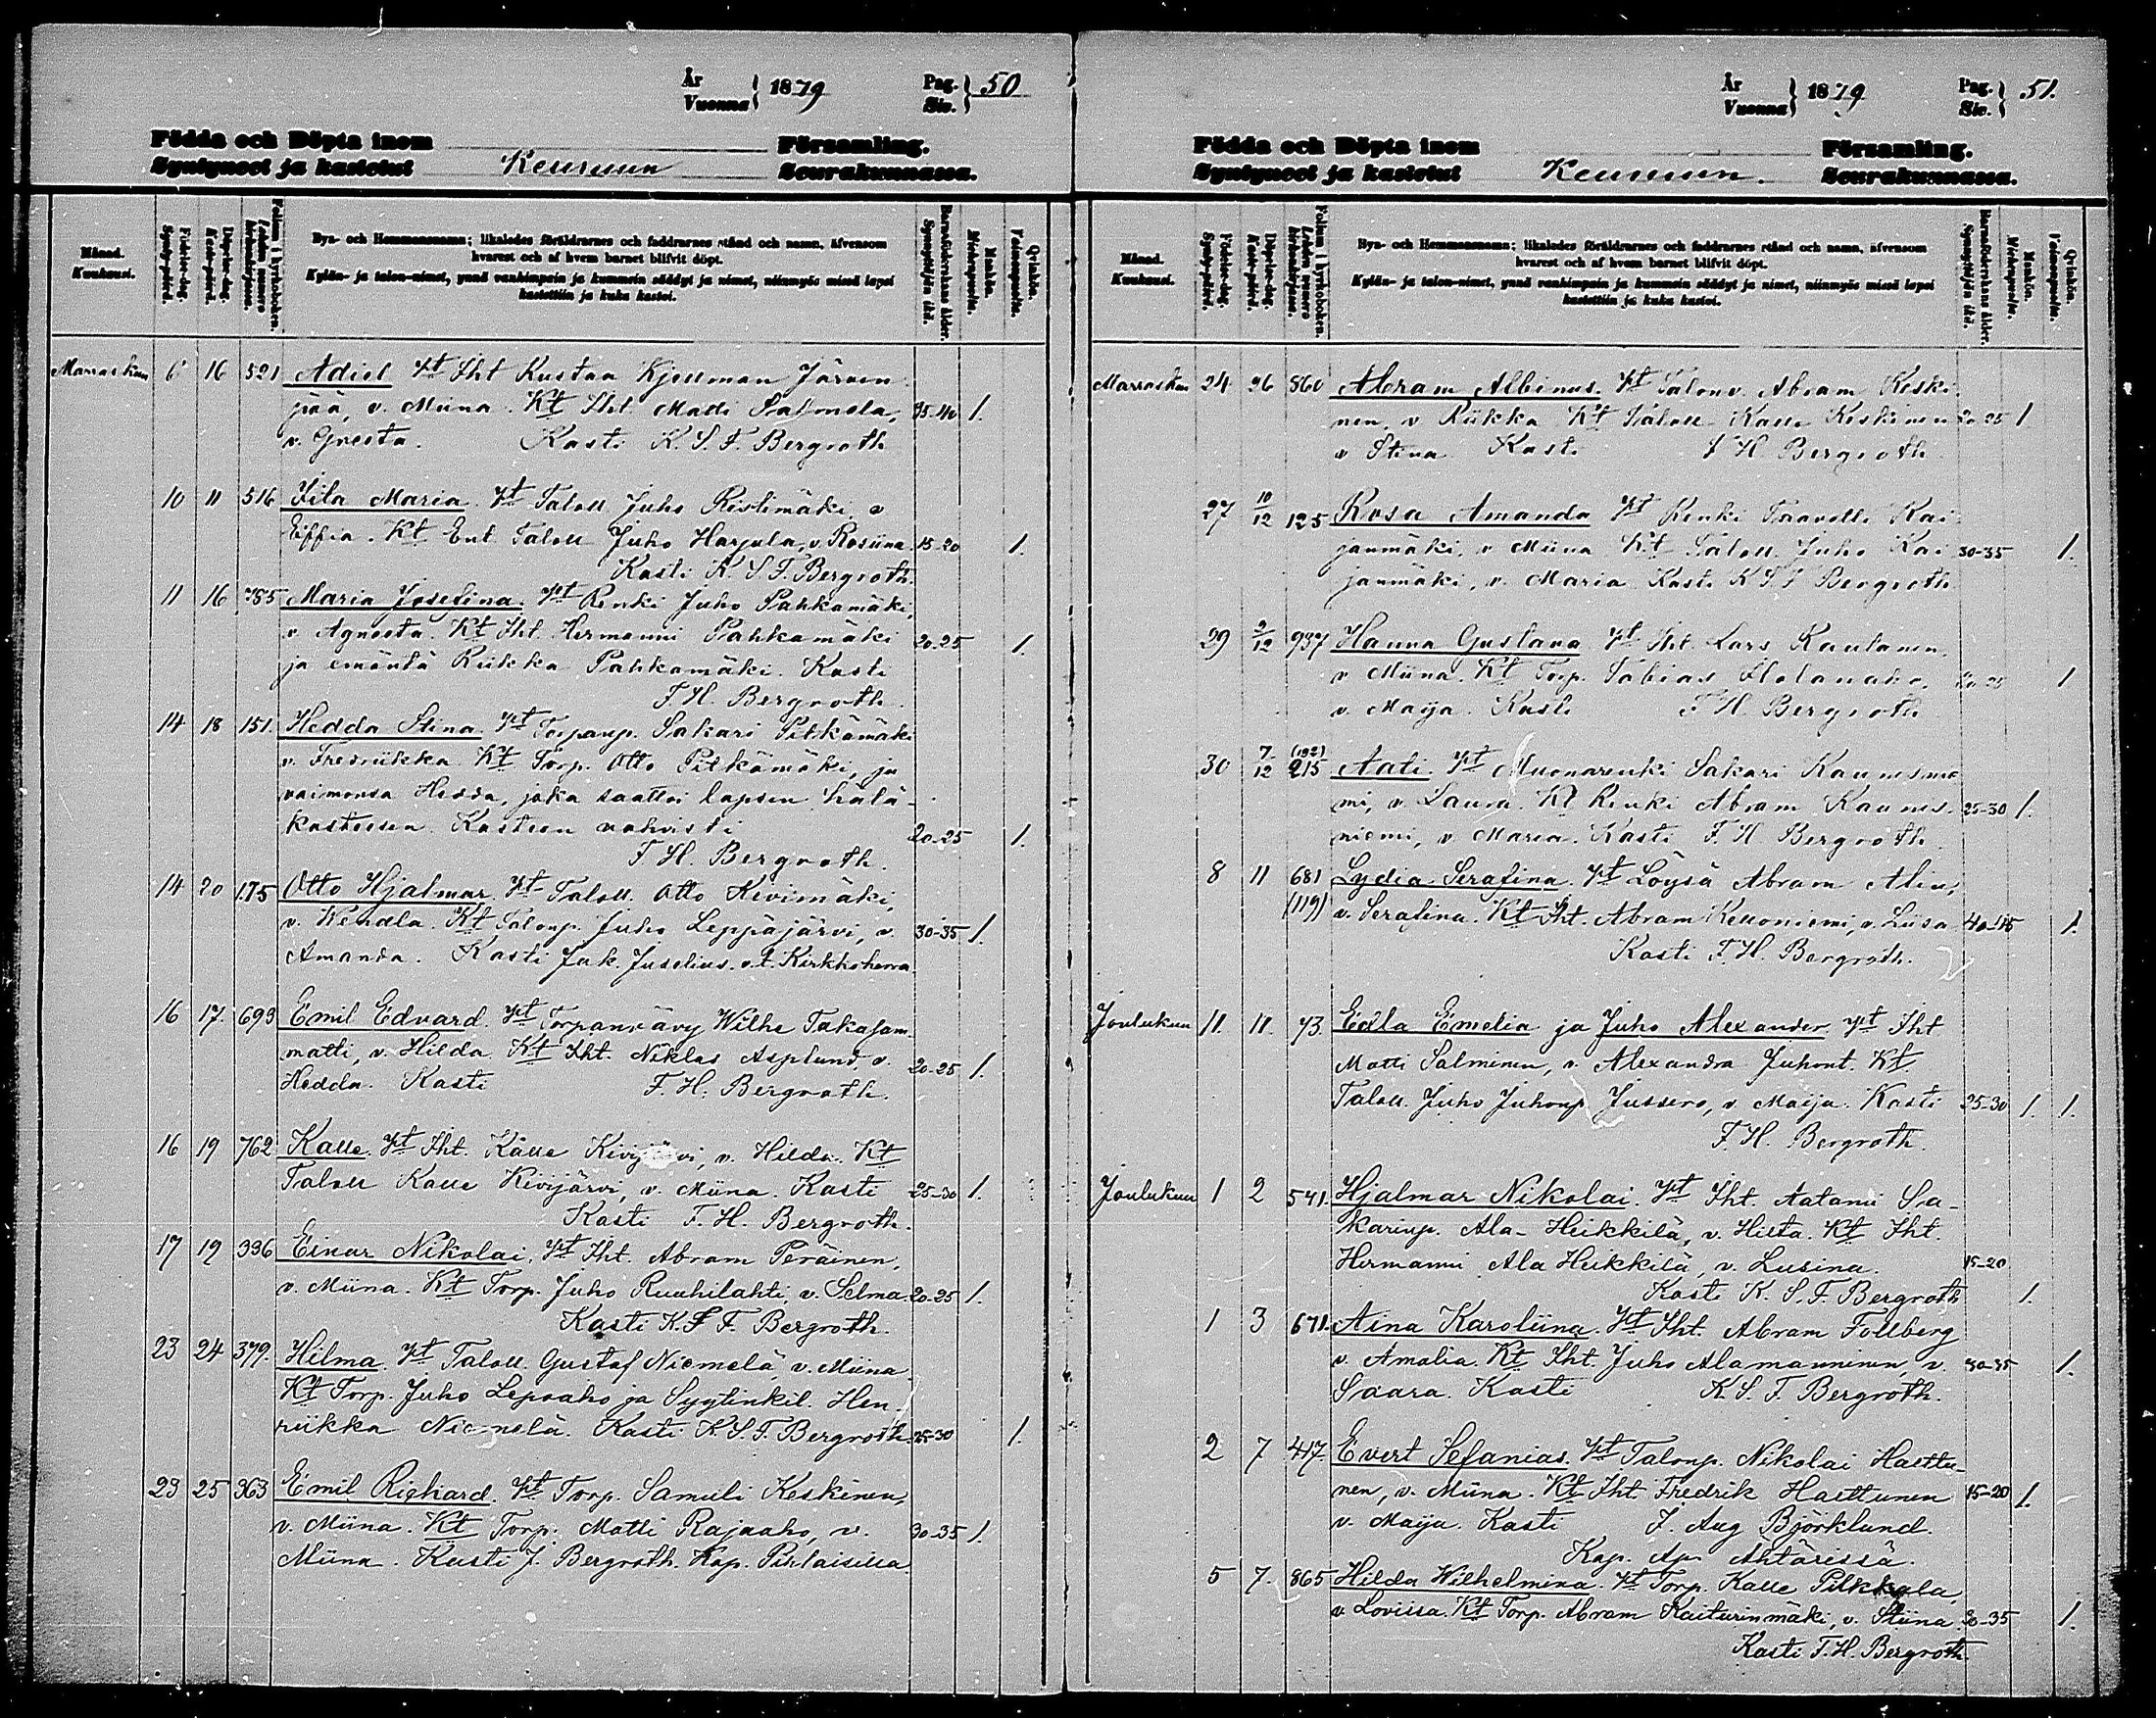 År
Vuonna } 1879
Pag.
Siv. } 50
Födda och Döpta inom Församling.
Syntyneet ja kastetut Keuruun Seurakunnassa.
Månad. Kuukausi.
Födelse-dag. Synty-päivä.
Döpelse-dag. Kaste-päivä.
Folium i kyrkoboken. Lehden numero kirkonkirjassa.
Bya- och Hemmansnamn; likaledes föräldrarnes och faddrarnes stånd och namn, äfvensom
hvarest och af hvem barnet blifvit döpt.
Kylän- ja talon-nimet, ynnä vanhimpain ja kummein säädyt ja nimet, niinmyös missä lapsi
kastettiin ja kuka kastoi.
Barnaföderskans ålder. Synnyttäjän ikä.
Mankön. Miehenpuolta.
Qvinkön. Vaimonpuolta.
Marraskuu 6 16 521 Adiel Vt Iht Kustaa Kjellman Järven
pää, v. Miina. Kt Iht. Matti Salmela, 35-40 1.
v. Greeta. Kasti K. S. F. Bergroth
10 11 516 Iita Maria. Vt Taloll. Juho Ristimäki, v
Eiffia. Kt Ent. Taloll Juho Harjula, v. Rosiina 15-20 1.
Kasti K. S. F. Bergroth.
11 16 785 Maria Josefina. Vt Renki Juho Pahkamäki,
v. Agneeta. Kt Iht. Hermanni Pahkamäki 20-25 1.
ja emäntä Riikka Pahkamäki. Kasti
F. H. Bergroth.
14 18 151. Hedda Stina. Vt Torpanp. Sakari Pitkämäki
v. Fredriikka Kt Torp. Otto Pitkämäki, ja
vaimonsa Hedda, joka saattoi lapsen hätä-
kasteesen. Kasteen vahvisti 20-25 1.
F. H. Bergroth.
14 20 175 Otto Hjalmar. Vt Taloll. Otto Kivimäki,
v. Wendla. Kt Talonp. Juho Leppäjärvi, v. 30-35 1.
Amanda. Kasti Jak. Juselius. v.t. Kirkkoherra.
16 17. 693 Emil Edvard. Vt Torpanvävy Wilhe Takalam
matti, v. Hilda. Kt Iht. Niklas Asplund, v. 20-25 1.
Hedda. Kasti F. H. Bergroth.
16 19 762 Kalle. Vt Iht. Kalle Kivijärvi, v. Hilda. Kt
Taloll Kalle Kivijärvi, v. Miina. Kasti 25-30 1.
Kasti F. H. Bergroth.
17 19 336 Einar Nikolai. Vt Iht. Abram Peräinen,
v. Miina. Kt Torp. Juho Ruuhilahti, v. Selma. 20-25 1.
Kasti K. S F. Bergroth.
23 24 379. Hilma. Vt Taloll. Gustaf Niemelä, v. Miina
Kt Torp. Juho Lepoaho ja Syytinkil. Hen-
riikka Niemelä. Kasti K S. F. Bergroth. 25-30 1.
23 25 363 Emil Richard. Vt Torp. Samuli Keskinen,
v. Miina. Kt Torp. Matti Rajaaho, v. 30-35 1.
Miina. Kasti J. Bergroth. Kap. Pihlaisissa.
År
Vuonna } 1879
Pag.
Siv. } 51.
Födda och Döpta inom Församling.
Syntyneet ja kastetut Keuruun. Seurakunnassa.
Månad. Kuukausi.
Födelse-dag. Synty-päivä.
Döpelse-dag. Kaste-päivä.
Folium i kyrkoboken. Lehden numero kirkonkirjassa.
Bya- och Hemmansnamn; likaledes föräldrarnes och faddrarnes stånd och namn, äfvensom
hvarest och af hvem barnet blifvit döpt.
Kylän- ja talon-nimet, ynnä vanhimpain ja kummein säädyt ja nimet, niinmyös missä lapsi
kastettiin ja kuka kastoi.
Barnaföderskans ålder. Synnyttäjän ikä.
Mankön. Miehenpuolta.
Qvinkön. Vaimonpuolta.
Marraskuu 24 26 860 Abram Albinus. Vt Talonv. Abram Keski
nen, v Riikka Kt Taloll Kalle Keskinen 20-25 1
v Stina Kasti F H Bergroth
27 10/12 125 Rosa Amanda Vt Renki Taavetti Kai
janmäki, v Miina Kt Taloll. Juho Kai 30-35 1.
janmäki, v. Maria. Kasti K S F Bergroth
29 2/12 937 Hanna Gustava Vt Iht. Lars Rautanen,
v Miina. Kt Torp. Tabias 1
v. Maija. Kasti F H Bergroth
30 7/12 (192) 215 Aati. Vt Muonarenki Sakari Kaunisnie
mi, v. Laura. Kt Renki Abram Kaunis- 25-30 1.
niemi, v Maria. Kasti F. H Bergroth.
8 11 681 Lydia Serafina. Vt Löysä Abram Alin,
(119) v. Serafina. Kt Iht. Abram Kelloniemi, v. Liisa 40-45 1.
Kasti F. H. Bergroth.
Joulukuu 11. 11 73. Edla Emelia ja Juho Alexander Vt Iht
Matti Salminen, v. Alexandra Juhont. Kt
Taloll. Juho Juhonp Jussero, v Maija. Kasti 25-30 1. 1.
F. H. Bergroth.
Joulukuu 1 2 541. Hjalmar Nikolai. Vt Iht. Aatami Sa-
karinp. Ala-Heikkilä, v. Hilta. Kt Iht.
Hermanni Ala Heikkilä, v. Lusina. 15-20
Kasti K. S. F. Bergroth 1.
1 3 671. Aina Karoliina. Vt Iht. Abram Follberg
v. Amalia. Kt Iht. Juho Alamanninen, v. 30-35 1.
Saara. Kasti K. S. F. Bergroth.
2 7 417. Evert Sefanias. Vt Talonp. Nikolai Hasttu-
nen, v. Miina. Kt Iht Fredrik Hasttunen 15-20 1.
v. Maija. Kasti J. Aug Björklund.
Kap. Ap. Ahtärissä.
5 7. 865 Hilda Wilhelmina. Vt Torp. Kalle Pilkkala,
v. Loviisa. Kt Torp. Abram Raiturinmäki, v. Stiina 30-35 1.
Kasti F. H. Bergroth.